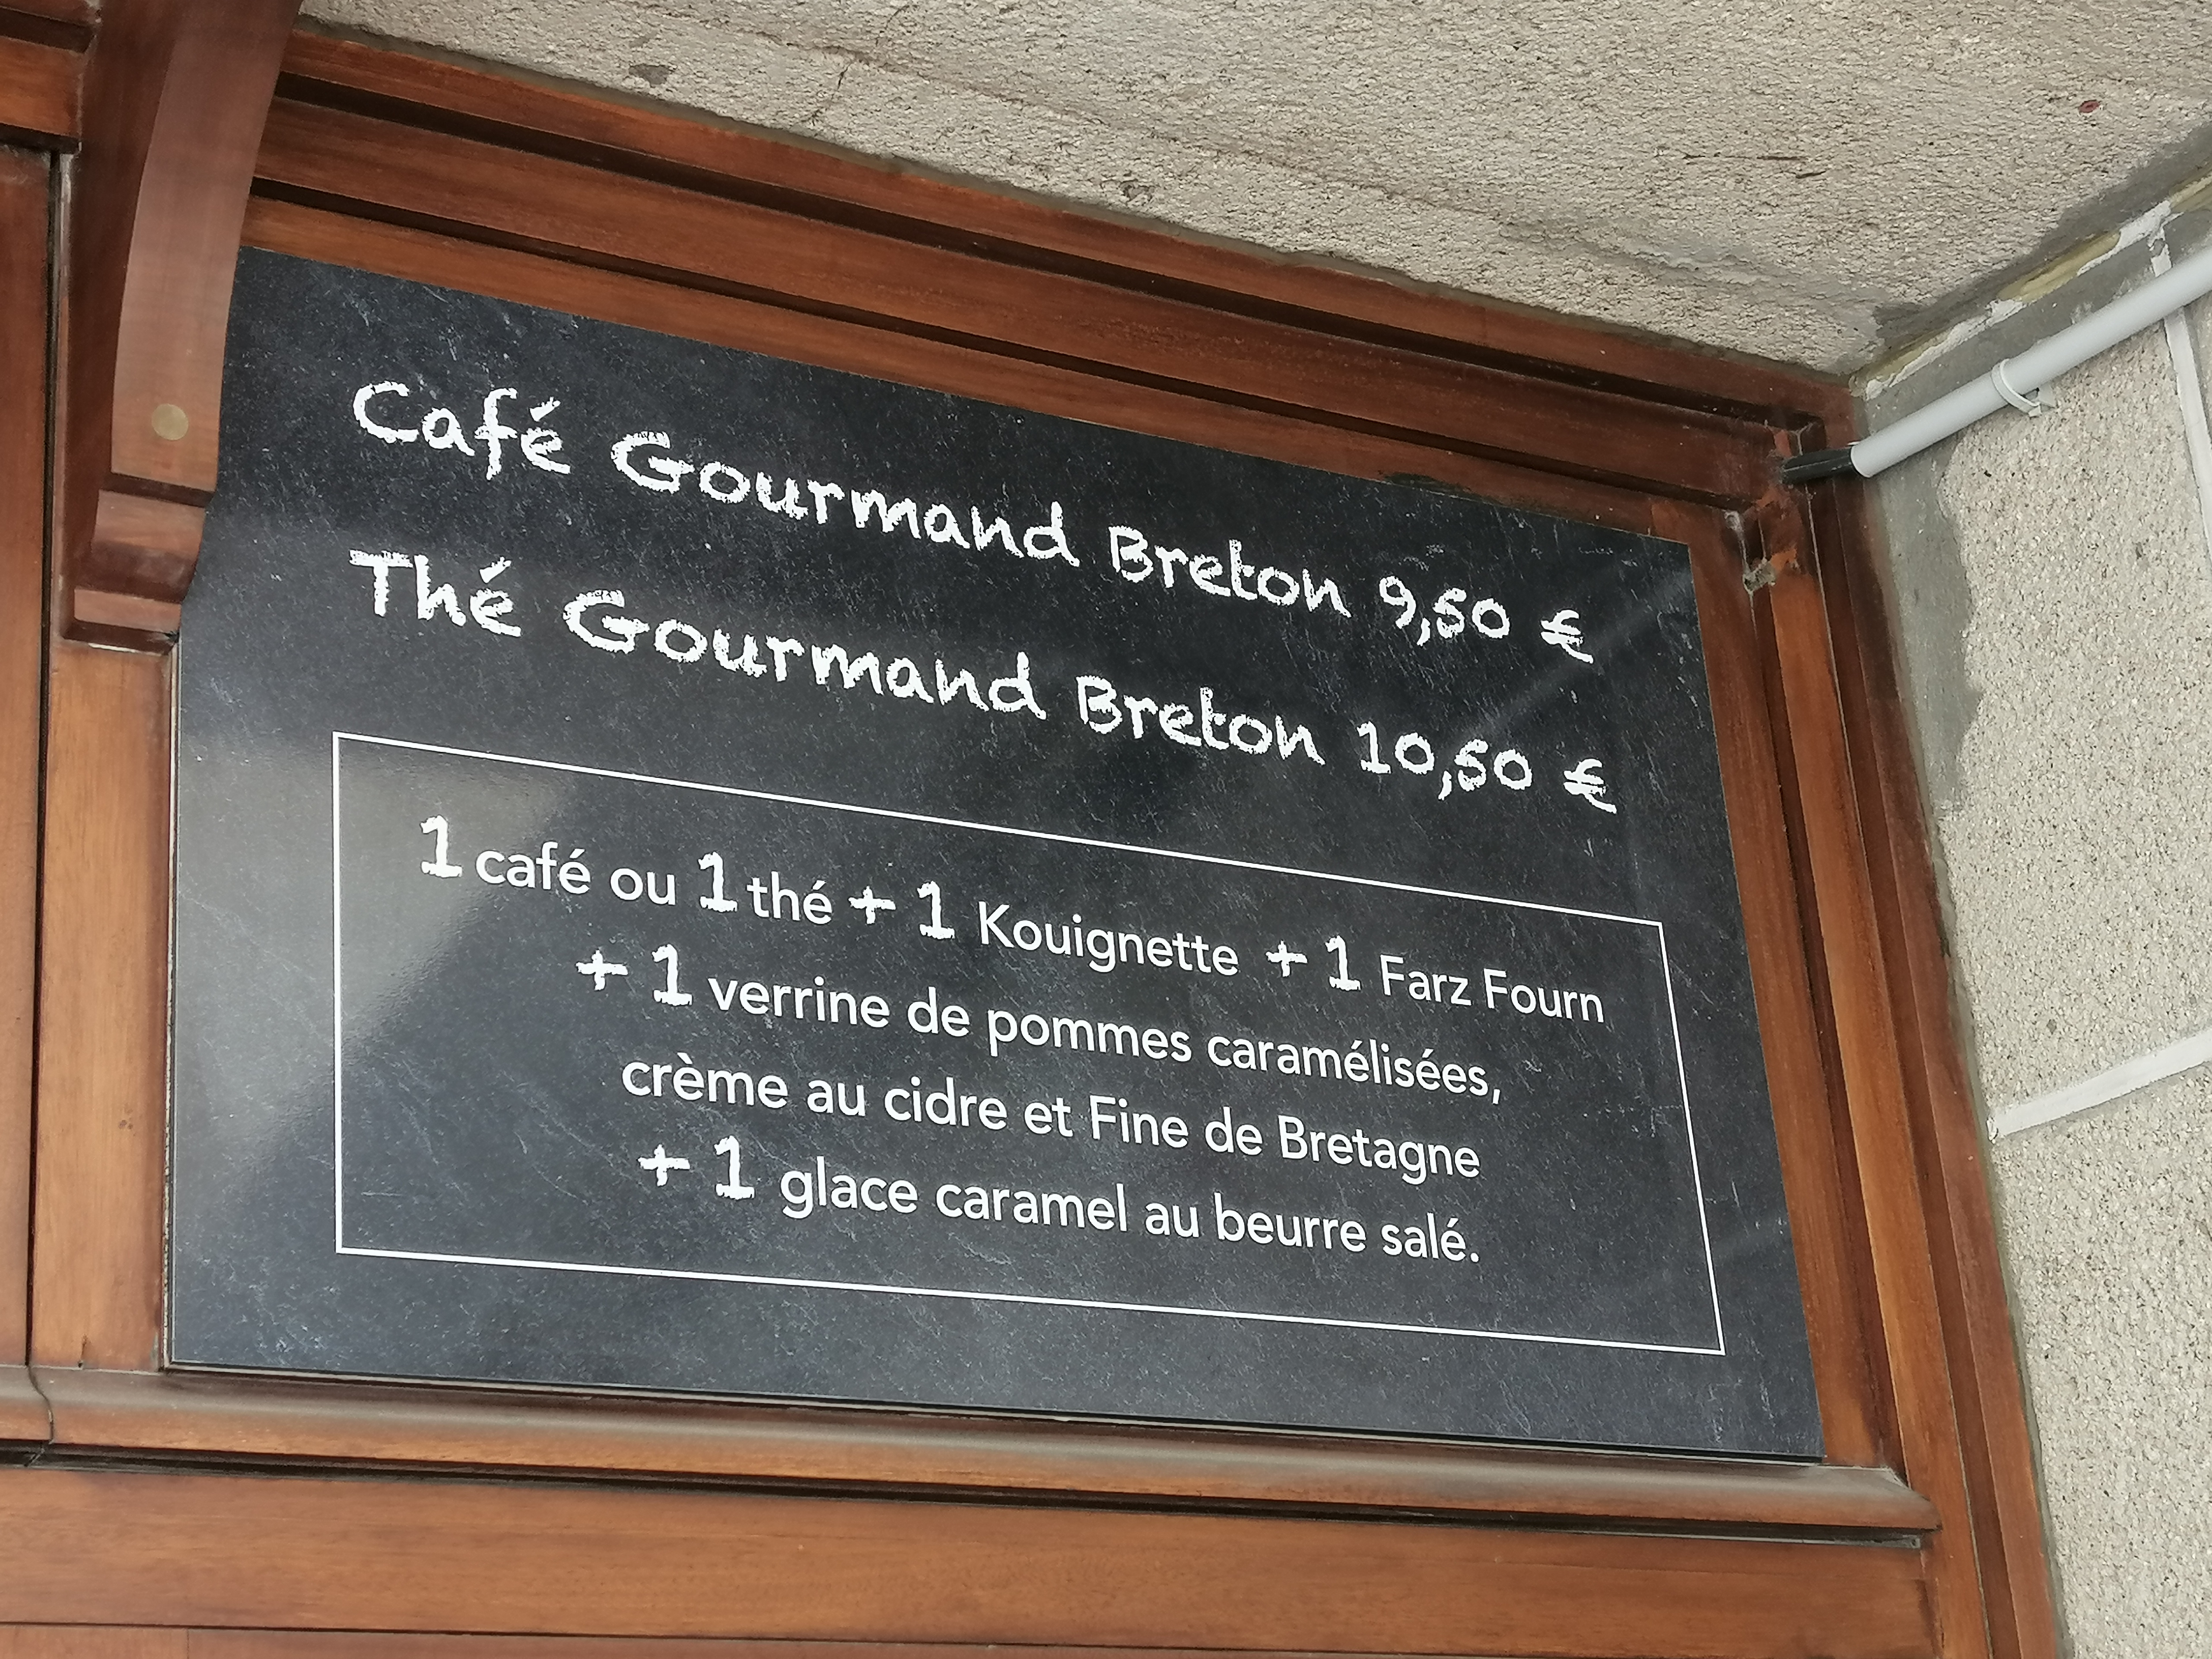 Café Gourmand Breton 9,50 €
Thé Gourmand Breton 10,50 €
1 café ou 1 thé + 1 Kouignette + 1 Farz Fourn
+ 1 verrine de pommes caramélisées,
crème au cidre et Fine de Bretagne
+ 1 glace caramel au beurre salé.